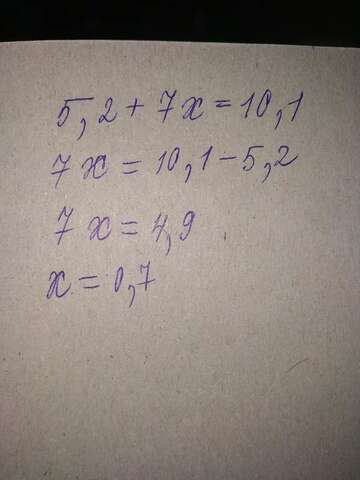 5,2 + 7x = 10,1
7x = 10,1 - 5,2
7x = 4,9
x = 0,7